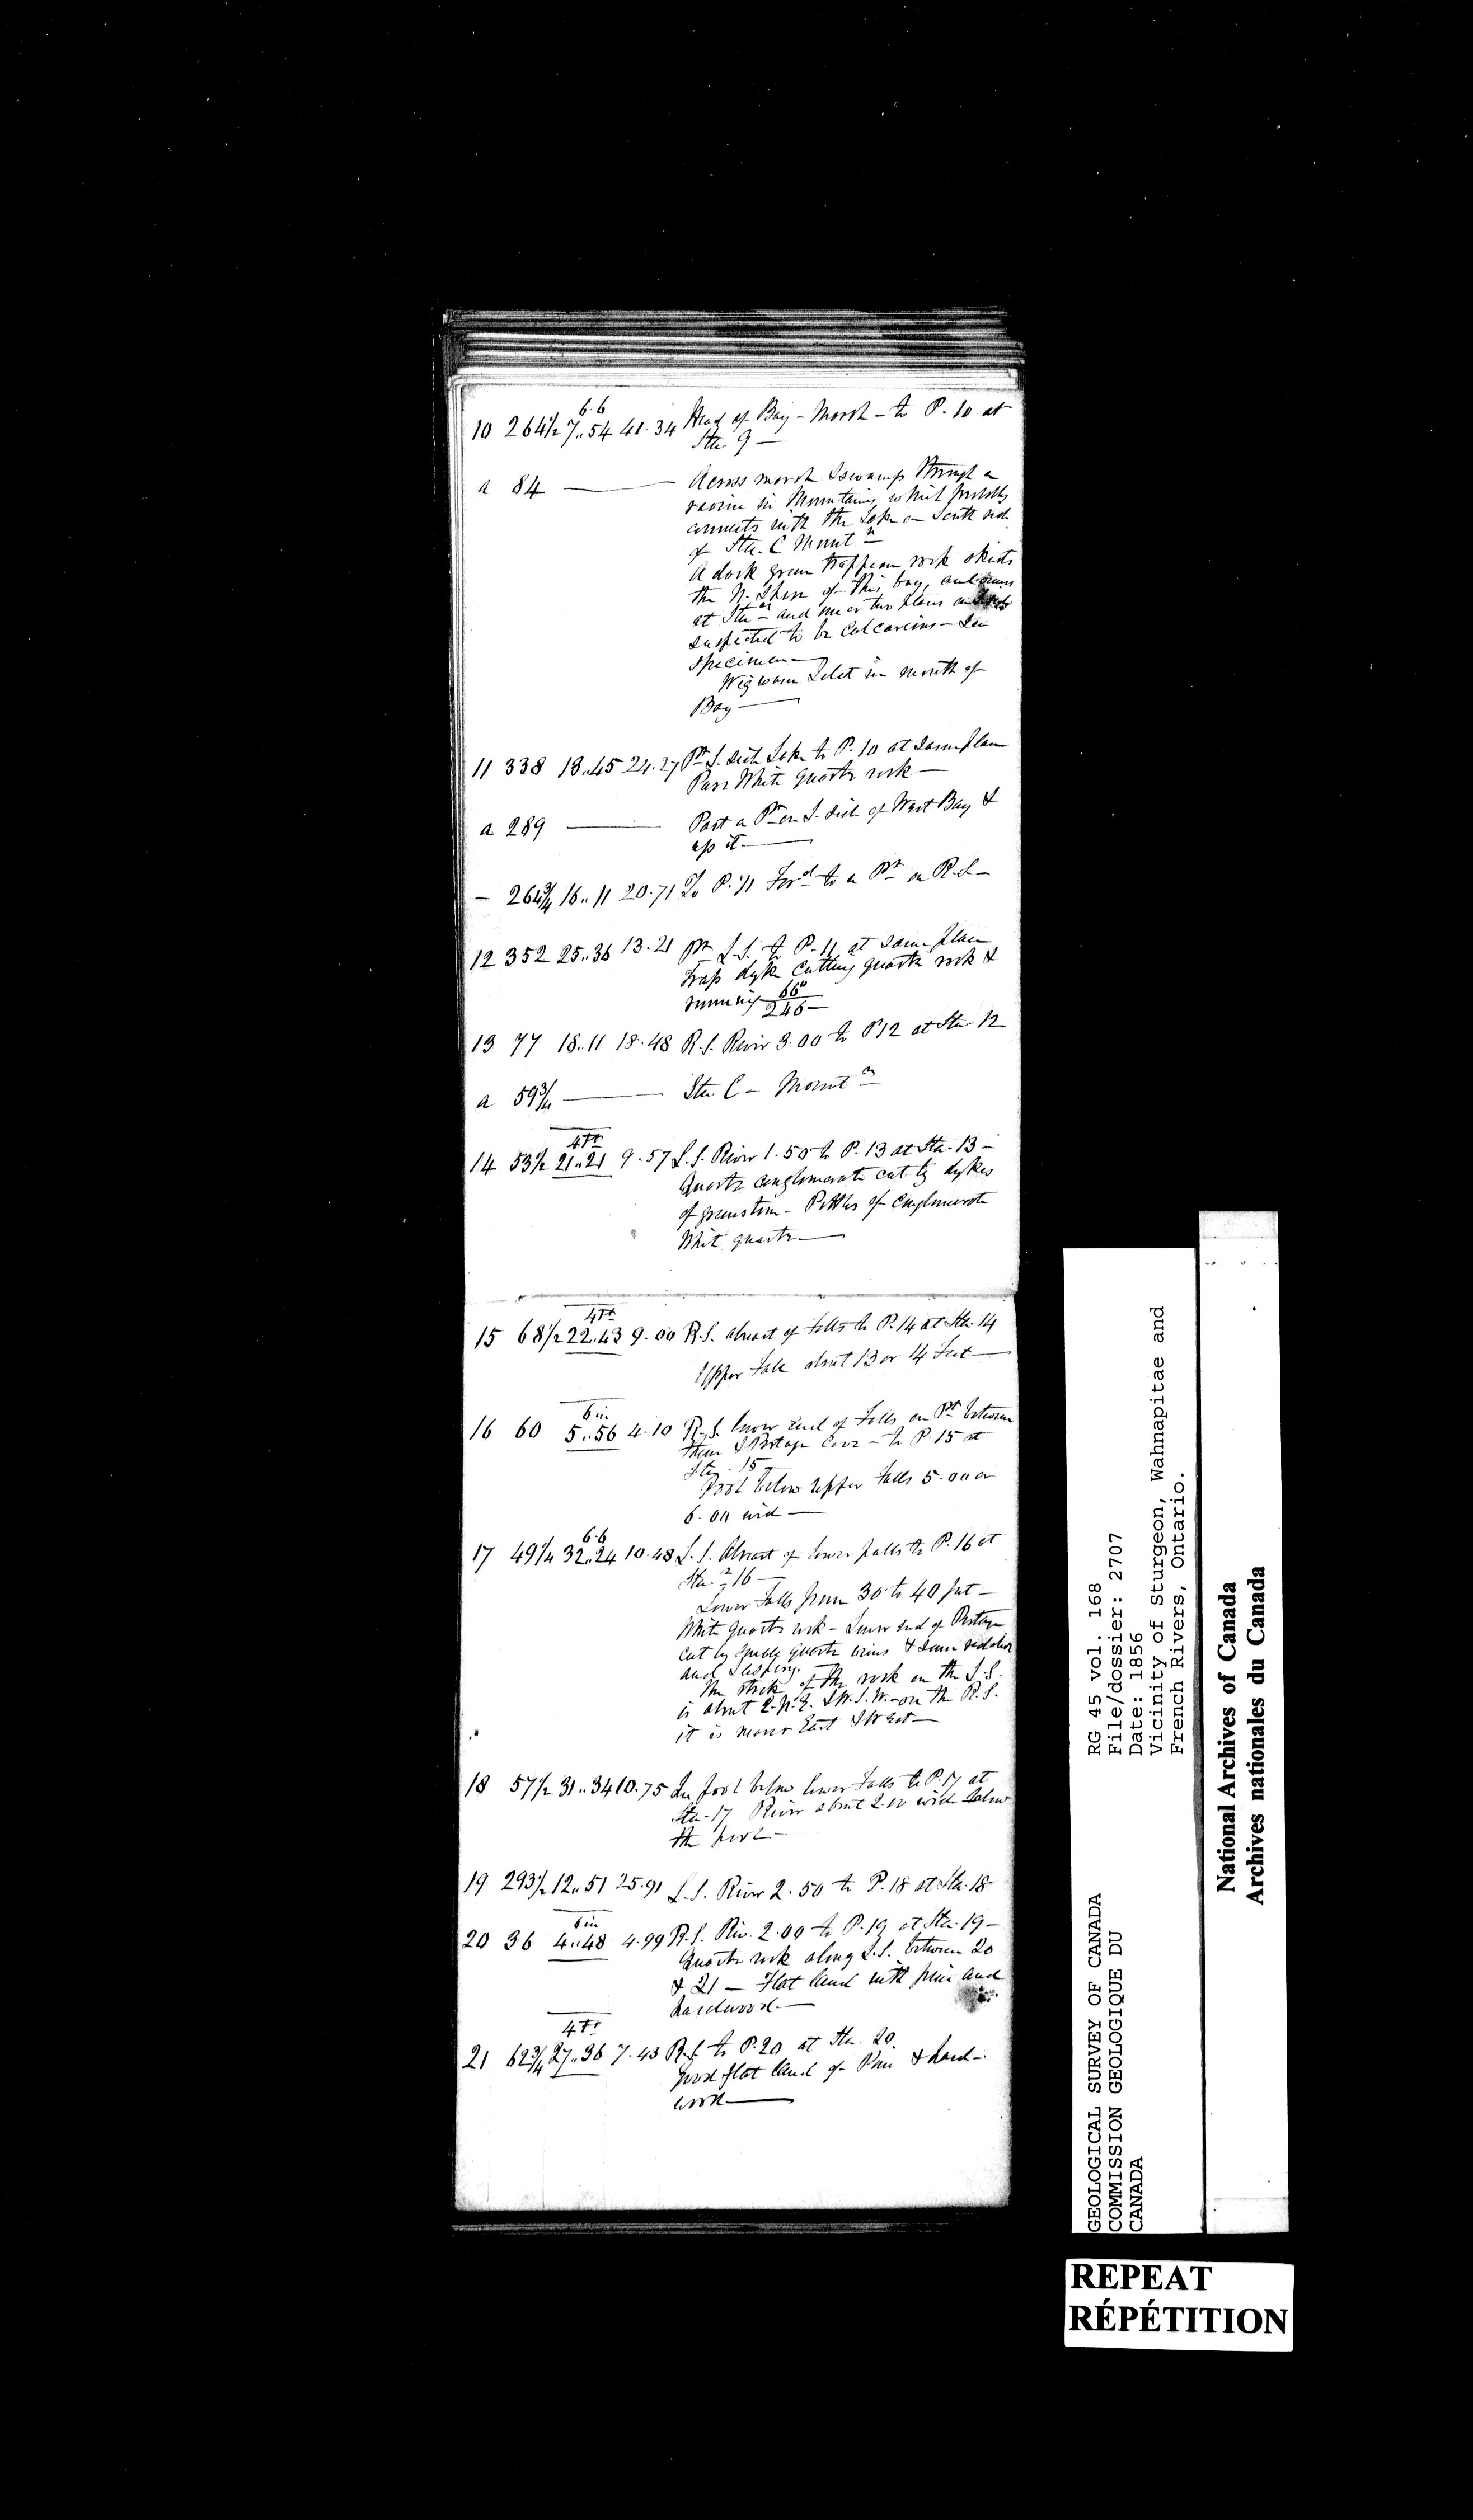 6.6
10 264½ 7..54 41.34 Head of Bay – Marsh – to P. 10 at
Sta. 9 —
a 84 — Across marsh & swamp through a
ravine in Mountains which probably
connects with the Lake on South side
of Sta. C Mount n
A dark green trappean rock skirts
the N. Shore of this bay, and
at Sta n and one or two places
suspected to be Calcareous – See
specimen —
Wigwam Islet in mouth of
Bay —
11 338 13..45 24.27 Pt S. side Lake to P. 10 at same place
Pass White quartz rock —
a 289 — Past a Pt on S. side of West Bay &
up it. —
– 264¾ 16..11 20.71 To P. 11 Ford to a Pt on R.S. –
12 352 25..36 13.21 Pt L.S. to P. 11 at same place
Trap dyke cutting quartz rock &
running 66°
246 –
13 77 18..11 18.48 R.S. River 3.00 to P12 at Sta. 12
a 59¾ — Sta C – Mount n
4 Ft
14 53½ 21..21 9.57 L.S. River 1.50 to P. 13 at Sta. 13 –
Quartz conglomerate cut by dykes
of greenstone – Pebbles of Conglomerate
White quartz —
4 Ft
15 68½ 22..43 9.00 R.S. abreast of Falls to P. 14 at Sta. 14
Upper Fall about 13 or 14 Feet —
6 in
16 60 5..56 4.10 R.S. lower end of Falls on Pt between
them & Portage Cove – to P. 15 at
Sta. 15
Pool below Upper Falls 5.00 or
6.00 wide —
6.6
17 49¼ 32..24 10.48 L.S. Abreast of lower falls to P. 16 at
Sta. n 16 —
Lower Falls from 30 to 40 feet –
White quartz rock – Lower end of Portage
cut by quartz veins & some
and
The strike of the rock on the L.S.
is about E.N.E. & W.S.W. – on the R.S.
it is more East & West —
18 57½ 31..34 10.75 In pool below lower Falls to P. 17 at
Sta. 17 River about 2.00 wide below
the pool –
19 293½ 12..51 25.91 L.S. River 2.50 to P. 18 at Sta. 18
6 in
20 36 4..48 4.99 R.S. Riv. 2.00 to P. 19 at Sta. 19 –
Quartz rock along L.S. between 20
& 21 – Flat land with pine and
hardwood. —
4 Ft
21 62¾ 27..36 7.43 R.S. to P. 20 at Sta. 20.
good flat land of Pine & hard-
wood —
GEOLOGICAL SURVEY OF CANADA
COMMISSION GEOLOGIQUE DU
CANADA
RG 45 vol. 168
File/dossier: 2707
Date: 1856
Vicinity of Sturgeon, Wahnapitae and
French Rivers, Ontario.
National Archives of Canada
Archives nationales du Canada
REPEAT
RÉPÉTITION